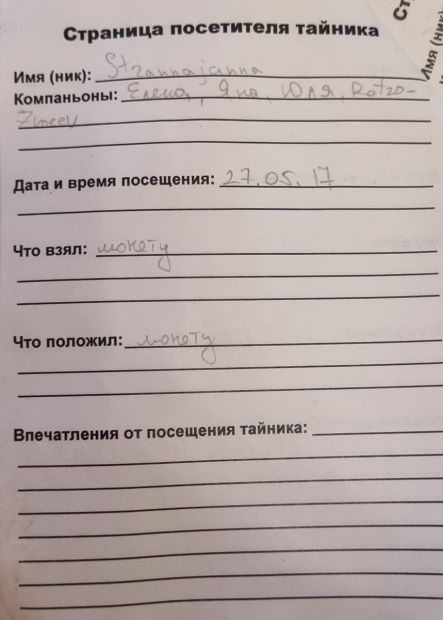 Страница посетителя тайника
Имя (ник): Strannajanna
Компаньоны: Елена, Яна, Юля, Rotzo-
Zmeev
Дата и время посещения: 27.05.17
Что взял: монету
Что положил: монету
Впечатления от посещения тайника:
Ст
Имя (ник)